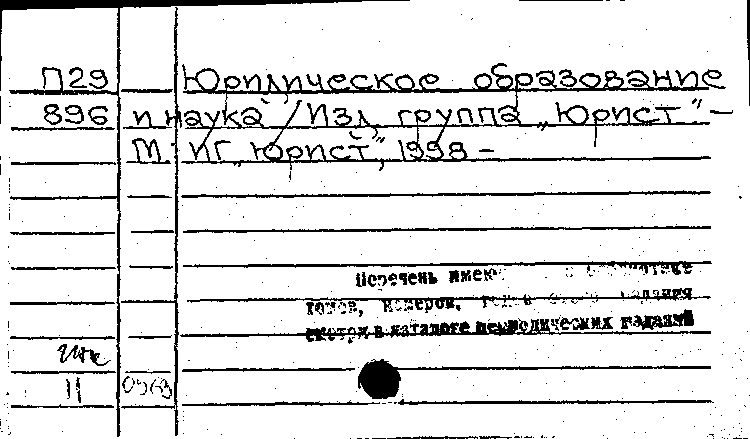 П29 Юридическое образование
896 и наука / Изд. группа „Юрист". –
М.: ИГ „Юрист", 1998 –
Перечень имею библиотеке
томов, номеров, издания
смотри в каталоге периодических изданий
11